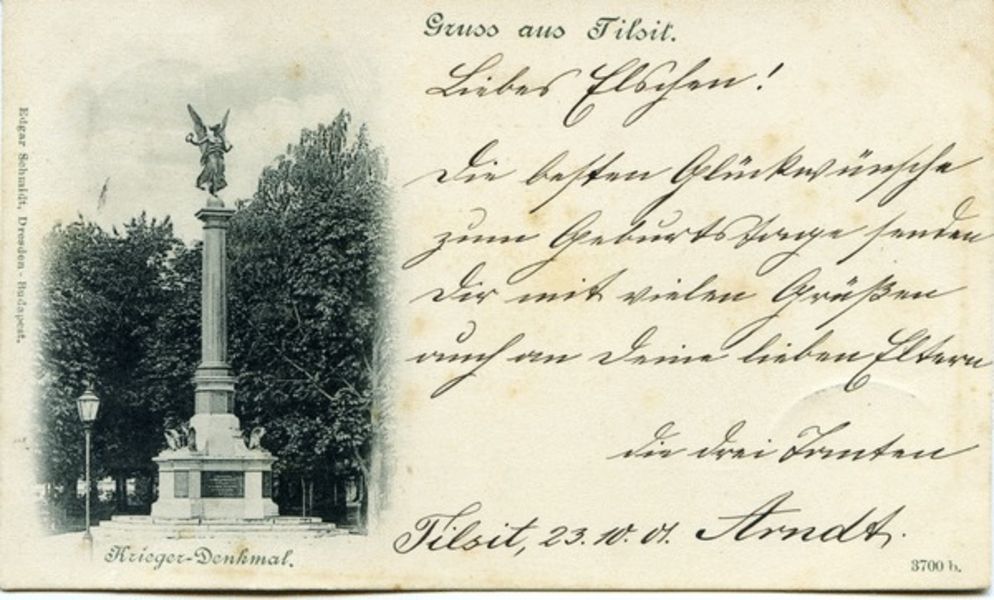 Gruss aus Tilsit.
Liebes Elschen!
Die besten Glückwünsche
zum Geburtstage senden
Dir mit vielen Grüßen
auch an Deine lieben Eltern
die drei Tanten
Tilsit, 23.10.01. Arndt.
Krieger-Denkmal.
3700 b.
Edgar Schmidt, Dresden-Budapest.